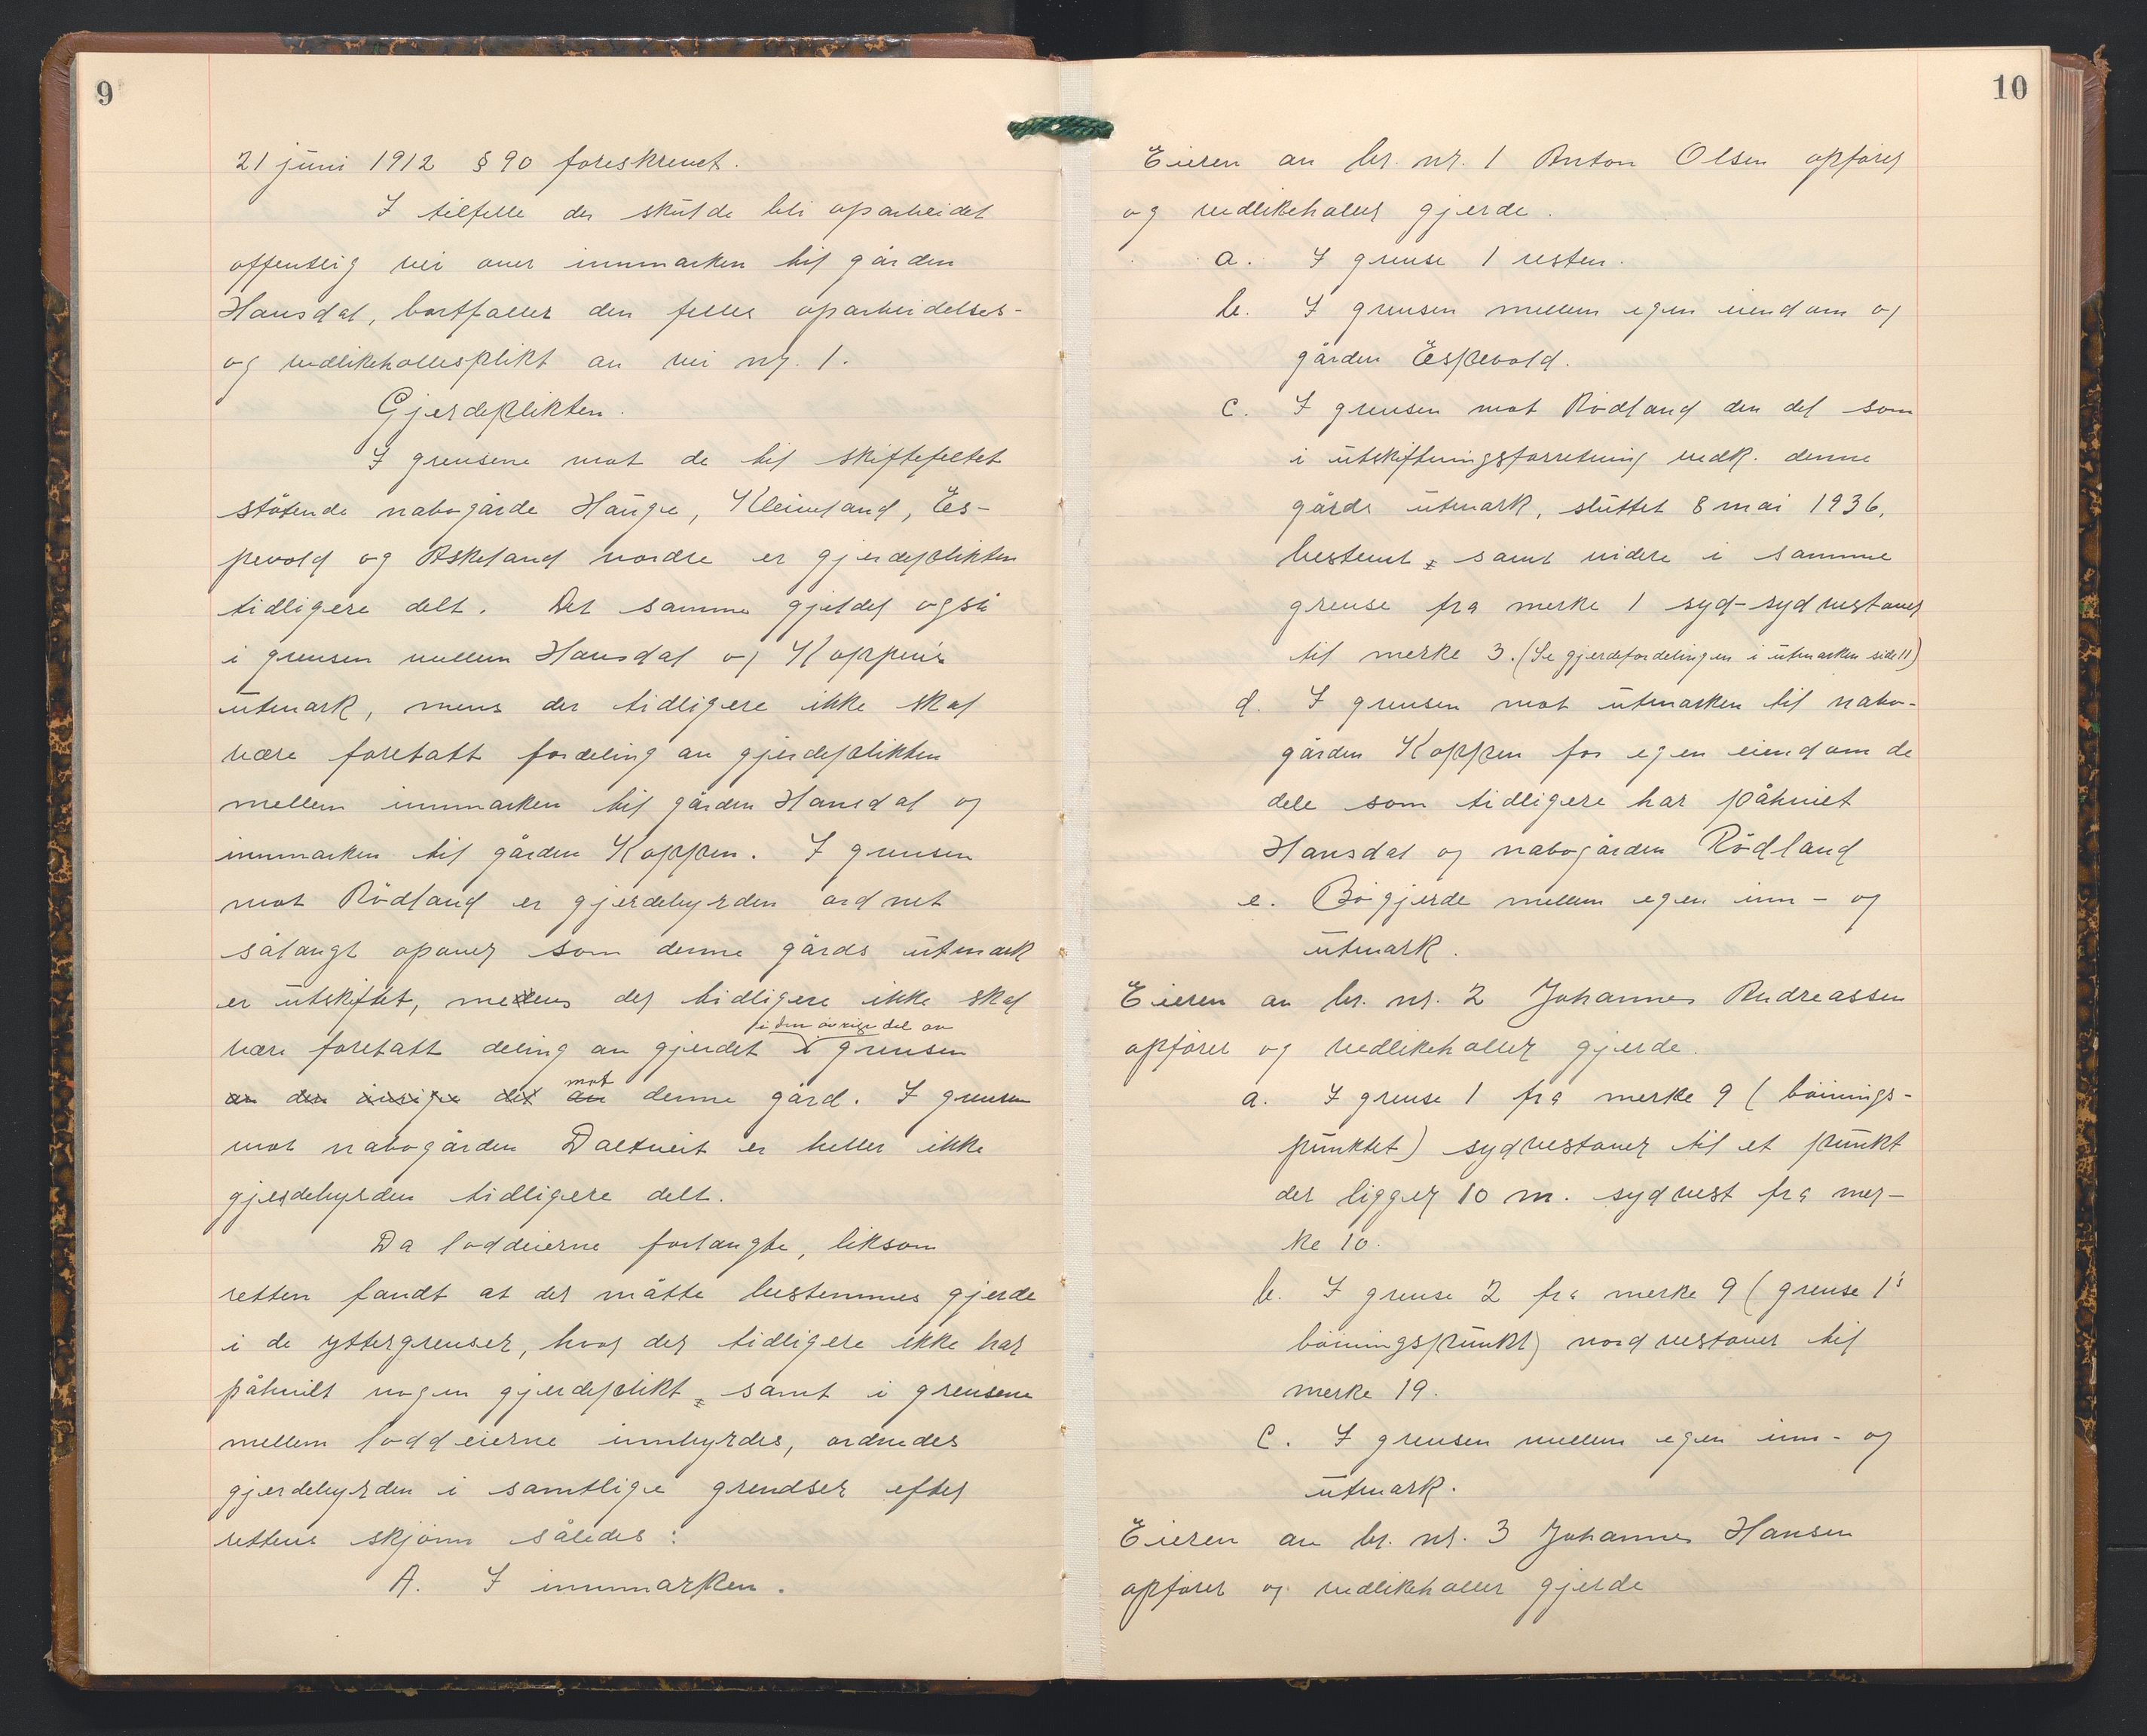 9
21 juni 1912 § 90 foreskrevet.
I tilfelle der skulde bli oparbeidet
offentlig vei over innmarken til gården
Hansdal, bortfaller den felles oparbeidelses-
og vedlikeholdesplikt av vei nr. 1.
Gjerdeplikten.
I grensene mot de til skiftefeltet
støtende nabogårde Hauge, Kleiveland, Es-
pevold og Askeland nordre er gjerdeplikten
tidligere delt. Det samme gjelder også
i grensen mellem Hansdal og Koppens
utmark, mens der tidligere ikke skal
være foretatt fordeling av gjerdeplikten
mellem innmarken til gården Hansdal og
innmarken til gården Koppen. I grensen
mot Rödland er gjerdebyrden ordnet
sålangt opover som denne gårds utmark
er utskiftet, medens der tidligere ikke skal
i den övrige del av
være foretatt deling av gjerdet i grensen
mot
av den övrige del av denne gård. I grensen
mot nabogården Daltveit er heller ikke
gjerdebyrden tidligere delt.
Da loddeierne forlangte, liksom
retten fandt at der måtte bestemmes gjerde
i de yttergrenser, hvor der tidligere ikke har
påhvilt nogen gjerdeplikt, samt i grensene
mellem loddeierne innbyrdes, ordnedes
gjerdebyrden i samtlige grendser efter
rettens skjönn således:
A. I innmarken.
10
Eieren av br. nr. 1 Anton Olsen opfører
og vedlikeholder gjerde.
a. I grense 1 resten.
b. I grensen mellem egen eiendom og
gården Espevold.
c. I grensen mot Rödland den del som
i utskiftningsforretning vedk. denne
gårds utmark, sluttet 8 mai 1936,
bestemt, samt videre i samme
grense fra merke 1 syd-sydvestover
til merke 3. (Se gjerdefordelingen i utmarken side 11)
d. I grensen mot utmarken til nabo-
gården Koppen for egen eiendom de
dele som tidligere har påhvilet
Hansdal og nabogården Rödland
e. Bögjerde mellem egen inn- og
utmark.
Eieren av br. nr. 2 Johannes Andreassen
opfører og vedlikeholder gjerde.
a. I grense 1 fra merke 9 (böinings-
punktet) sydvestover til et punkt
der ligger 10 m. sydvest fra mer-
ke 10.
b. I grense 2 fra merke 9 (grense 1's
böiningspunkt) nordvestover til
merke 19.
c. I grensen mellem egen inn- og
utmark.
Eieren av br. nr. 3 Johannes Hansen
opfører og vedlikeholder gjerde